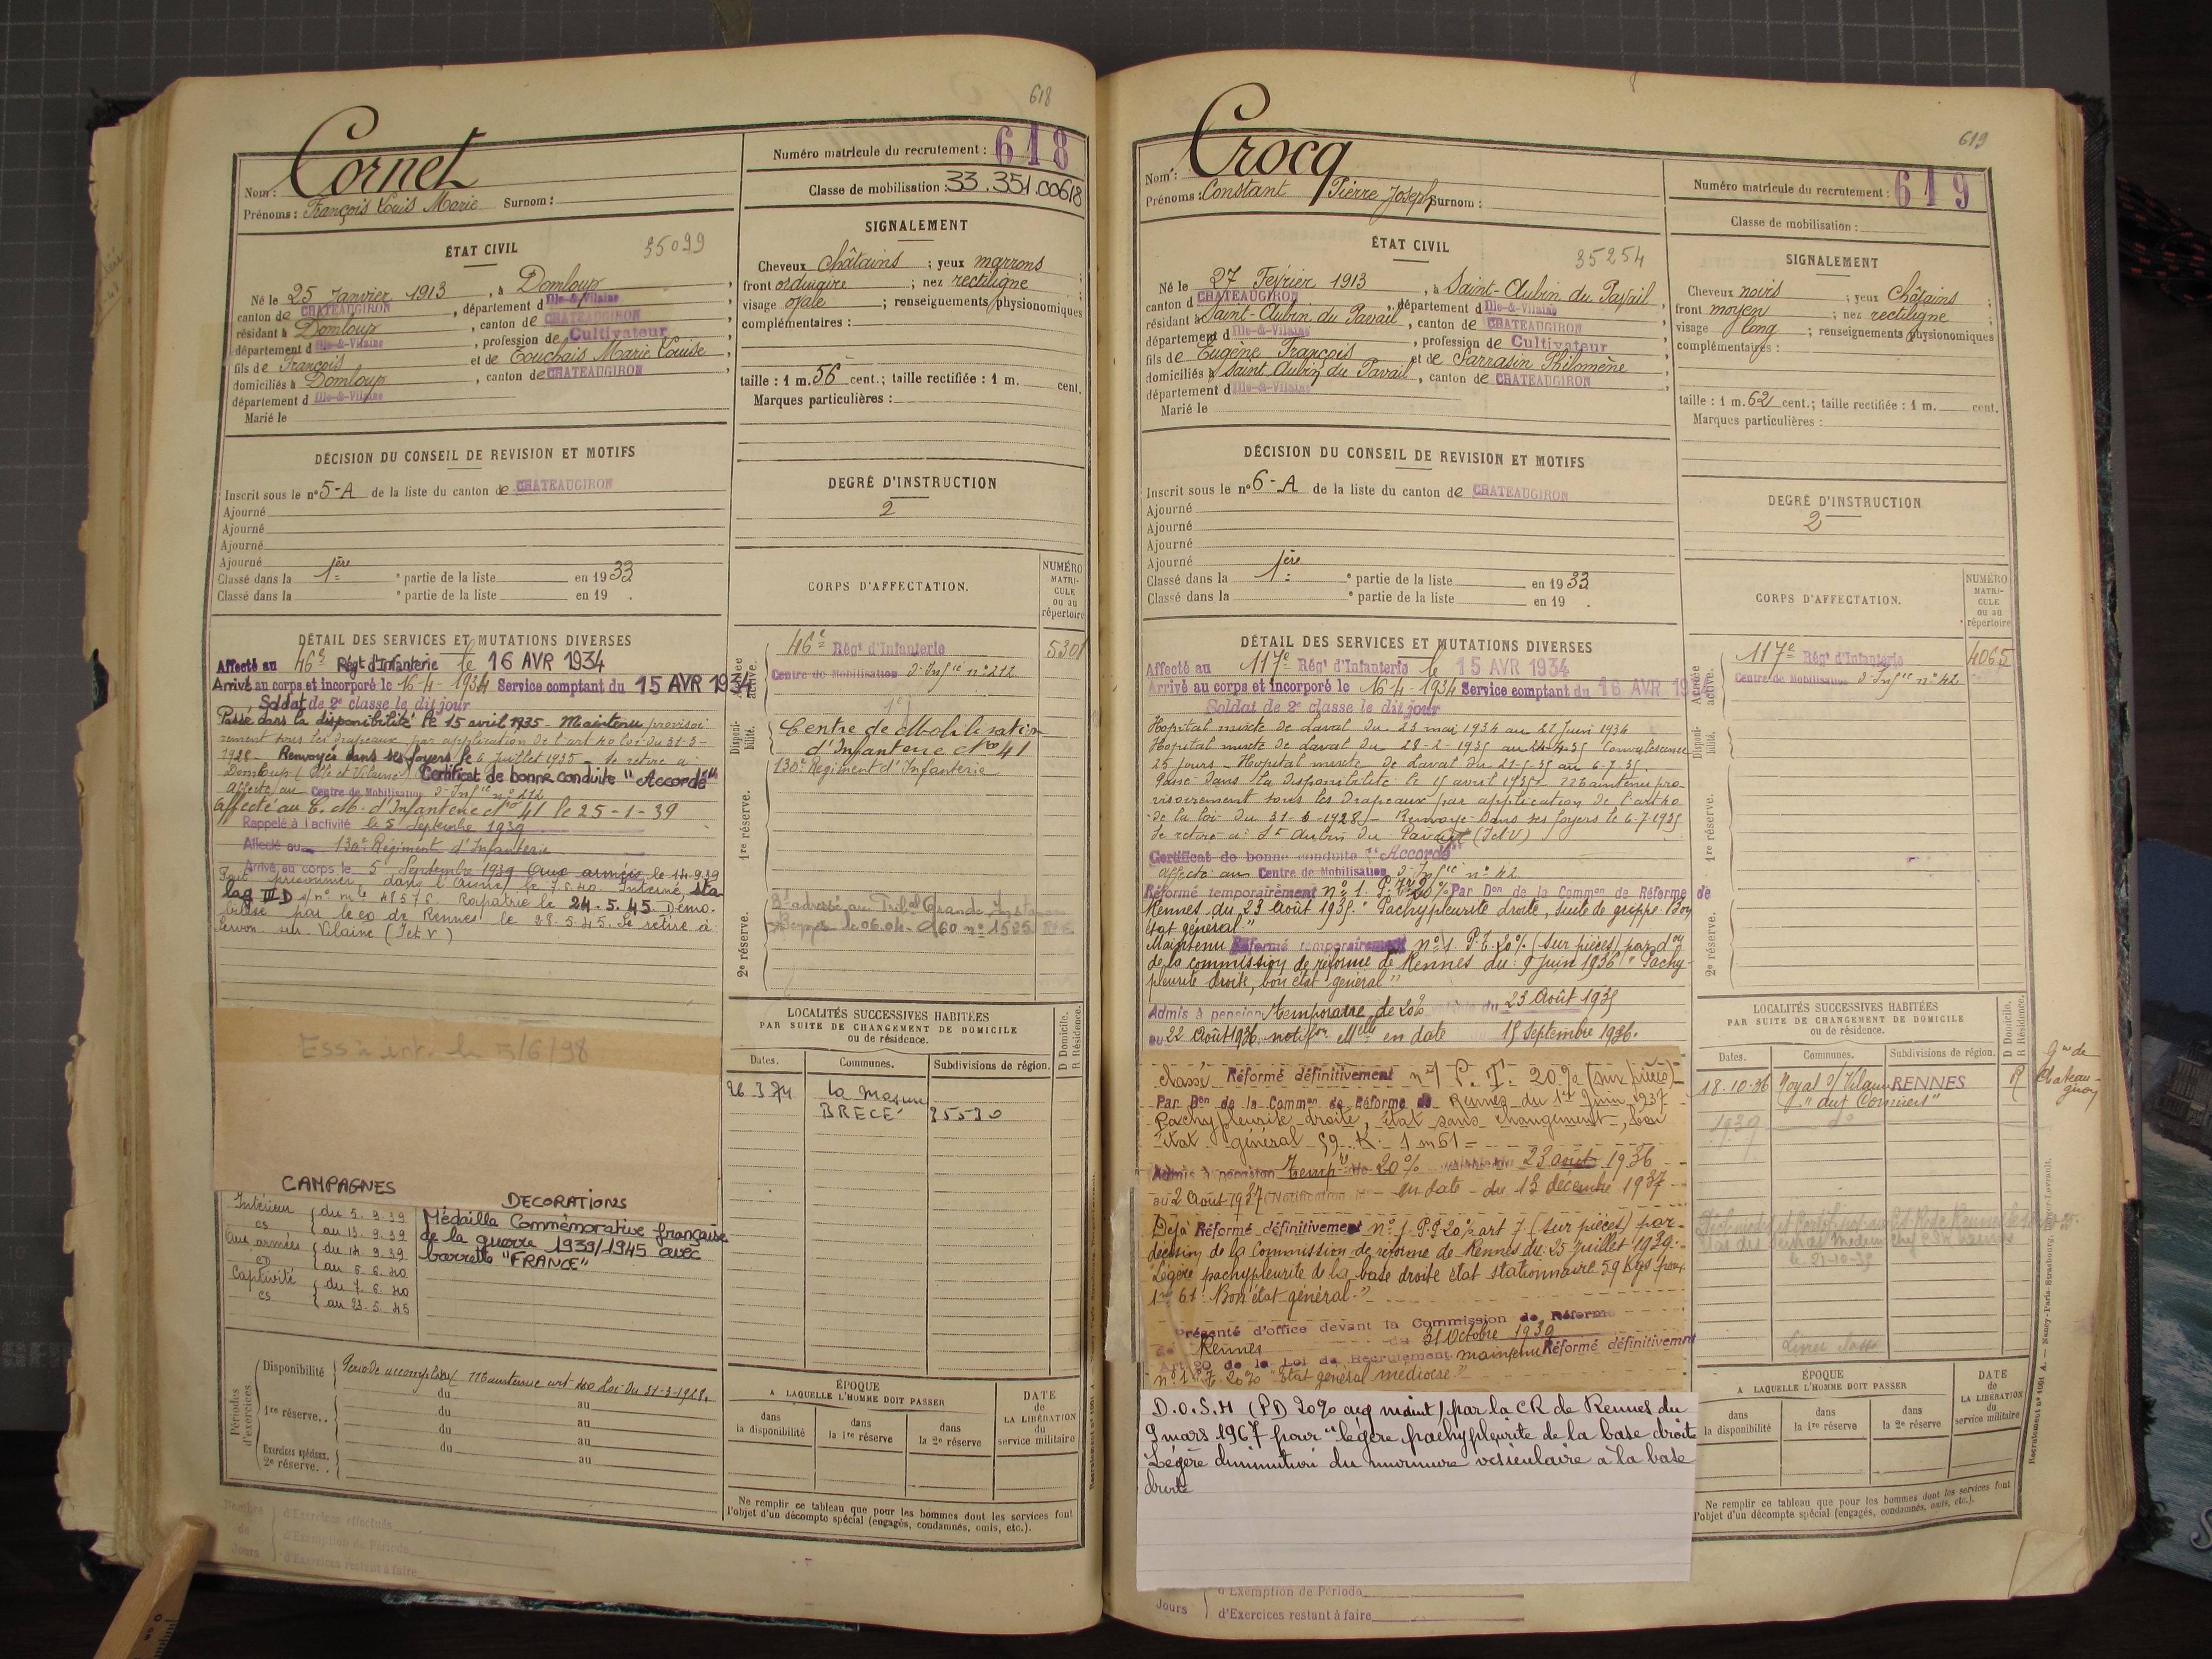 618
Cornet
Nom :
Prénoms : François Louis Marie Surnom :
Numéro matricule du recrutement : 618
Classe de mobilisation : 33.351.00618
ÉTAT CIVIL
35099
Né le 25 Janvier 1913, à Domloup,
canton de CHATEAUGIRON, département d Ille-&-Vilaine
résidant à Domloup, canton de CHATEAUGIRON
département d Ille-&-Vilaine, profession de Cultivateur
fils de François et de Touchais Marie Louise,
domiciliés à Domloup, canton de CHATEAUGIRON,
département d Ille-&-Vilaine
Marié le
SIGNALEMENT
Cheveux châtains ; yeux marrons ;
front ordinaire ; nez rectiligne ;
visage ovale ; renseignements physionomiques
complémentaires :
taille : 1 m. 56 cent.; taille rectifiée : 1 m. cent.
Marques particulières :
DÉCISION DU CONSEIL DE REVISION ET MOTIFS
Inscrit sous le n° 5-A de la liste du canton de CHATEAUGIRON
Ajourné
Ajourné
Ajourné
Ajourné
Classé dans la 1ère e partie de la liste en 1933
Classé dans la e partie de la liste en 19 .
DEGRÉ D'INSTRUCTION
2
DÉTAIL DES SERVICES ET MUTATIONS DIVERSES
Affecté au 46e Régt d'Infanterie le 16 AVR 1934
Arrivé au corps et incorporé le 16-4-1934 Service comptant du 15 AVR 1934
Soldat de 2e classe le dit jour
Passé dans la disponibilité le 15 avril 1935 - Maintenu provisoi
rement sous les drapeaux par application de l'art 40 loi du 31-3-
1928 - Renvoyé dans ses foyers le 6 juillet 1935 - Se retire à
Domloup (Ille et Vilaine) Certificat de bonne conduite "Accordé"
Affecté au Centre de Mobilisation d'Infie n° 212
Affecté au C. M. d'Infanterie No 41 le 25-1-39
Rappelé à l'activité le 5 Septembre 1939
Affecté au 130e Régiment d'Infanterie
Arrivé au corps le 5 Septembre 1939 Aux armées le 14.9.39
Fait prisonnier dans l'Aisne le 7.6.40 Interné sta
lag III D s/ n° mle Rapatrié le 24.5.45 Démo-
bilisé par le CO de Rennes le 28.5.45. Se retire à
Servon sur Vilaine (I et V)
CORPS D'AFFECTATION.
NUMÉRO MATRI-CULE ou au répertoire
Armée active.
46e Rég' d'Infanterie 5301
Centre de Mobilisation d'Infie n° 212
Disponi-bilité.
Centre de Mobilisation
d'Infanterie No 41
130e Régiment d'Infanterie
1re réserve.
2e réserve.
Ess à int. le 5/6/98
CAMPAGNES
Intérieur cs { du 5.9.39
au 13.9.39
Aux armées CD { du 14.9.39
au 6.6.40
Captivité cs { du 7.6.40
au 23.5.45
DECORATIONS
Médaille Commémorative française
de la guerre 1939/1945 avec
barrette "FRANCE"
LOCALITÉS SUCCESSIVES HABITÉES
PAR SUITE DE CHANGEMENT DE DOMICILE
ou de résidence.
D Domicile. R Résidence.
Dates. Communes. Subdivisions de région.
26 3 74 La
BRECÉ 35530
Périodes d'exercices
Disponibilité Période accomplie (Maintenue art 40 Loi du 31-3-1928.
1re réserve. . du au
du au
du au
Exercices spéciaux. du au
2e réserve. .
ÉPOQUE
A LAQUELLE L'HOMME DOIT PASSER
dans la disponibilité
dans la 1re réserve
dans la 2e réserve
DATE de LA LIBÉRATION du service militaire
Ne remplir ce tableau que pour les hommes dont les services font
l'objet d'un décompte spécial (engagés, condamnés, omis, etc.).
Nombre de Jours
d'Exercices effectués
d'Exemption de Période
d'Exercices restant à faire
619
Crocq
Nom :
Prénoms : Constant Pierre Joseph Surnom :
Numéro matricule du recrutement : 619
Classe de mobilisation :
ÉTAT CIVIL
35254
Né le 27 Février 1913, à Saint-Aubin du Pavail,
canton d CHATEAUGIRON, département d Ille-&-Vilaine
résidant à Saint-Aubin du Pavail, canton de CHATEAUGIRON
département d Ille-&-Vilaine, profession de Cultivateur
fils de Eugène François et de Sarrasin Philomène
domiciliés à Saint Aubin du Pavail, canton de CHATEAUGIRON
département d Ille-&-Vilaine
Marié le
SIGNALEMENT
Cheveux noirs ; yeux châtains ;
front moyen ; nez rectiligne ;
visage long ; renseignements physionomiques
complémentaires :
taille : 1 m. 62 cent.; taille rectifiée : 1 m. cent.
Marques particulières :
DÉCISION DU CONSEIL DE REVISION ET MOTIFS
Inscrit sous le n° 6-A de la liste du canton de CHATEAUGIRON
Ajourné
Ajourné
Ajourné
Ajourné
Classé dans la 1ère e partie de la liste en 1933
Classé dans la e partie de la liste en 19 .
DEGRÉ D'INSTRUCTION
2
DÉTAIL DES SERVICES ET MUTATIONS DIVERSES
Affecté au 117e Rég' d'Infanterie le 15 AVR 1934
Arrivé au corps et incorporé le 16-4-1934 Service comptant du 16 AVR 1934
Soldat de 2e classe le dit jour
Hopital mixte de Laval du 23 mai 1934 au 22 Juin 1934
Hopital mixte de Laval du 28-2-1935 au 24-4-35 Convalescence
25 jours - Hopital mixte de Laval du 21-5-35 au 6-7-35.
Passé dans la disponibilité le 15 avril 1935 - Maintenu pro-
visoirement sous les drapeaux par application de l'art 40
de la loi du 31-3-1928 - Renvoyé dans ses foyers le 6-7-1935
Se retire à St Aubin du Pavail (I et V)
Certificat de bonne conduite "Accordé"
Affecté au Centre de Mobilisation d'Infie n° 42
Réformé temporairement n° 1. P. 20% Par Don de la Common de Réforme de
Rennes du 23 Août 1935. "Pachypleurite droite, suite de grippe. Bon
état général"
Maintenu Réformé temporairement n° 1. P.T. 20% (sur pièces) par don
de la commission de réforme de Rennes du 9 Juin 1936 "Pachy-
pleurite droite, bon état général"
Admis à pension temporaire de 20% valable du 23 Août 1935
au 22 Août 1936 notifon Mlle en date du 15 Septembre 1936.
Classé Réformé définitivement n° 1 P. T. 20% (sur pièces)
Par Don de la Common de Réforme de Rennes du 1er Juin 1937
Pachypleurite droite, état sans changement, bon
état général 59 K. 1 m 61
Admis à pension tempre de 20% valable du 23 août 1936
au 2 Août 1937 (Notification en date du 13 décembre 1937
Déjà Réformé définitivement n° 1 P.P 20% art 7 (sur pièces) par
décision de la Commission de réforme de Rennes du 25 Juillet 1939.
"Légère pachypleurite de la base droite état stationnaire 59 Kgs pour
1m 61. Bon état général."
Présenté d'office devant la Commission de Réforme
de Rennes du 31 Octobre 1939
Art 20 de la Loi de Recrutement maintenu Réformé définitivement
n° 1 P.T. 20% "Etat général médiocre"
D.O.S.H (PD 20% acq maint) par la CR de Rennes du
9 mars 1967 pour "légère pachypleurite de la base droite
Légère diminution du murmure vésiculaire à la base
droite
CORPS D'AFFECTATION.
NUMÉRO MATRI-CULE ou au répertoire
Armée active.
117e Rég' d'Infanterie 4065
Centre de Mobilisation d'Infie n° 42
Disponi-bilité.
1re réserve.
2e réserve.
LOCALITÉS SUCCESSIVES HABITÉES
PAR SUITE DE CHANGEMENT DE DOMICILE
ou de résidence.
D Domicile. R Résidence.
Dates. Communes. Subdivisions de région.
18.10.36 Noyal s/ Vilaine RENNES R Gie de Chateaugiron
1939 do
ÉPOQUE
A LAQUELLE L'HOMME DOIT PASSER
dans la disponibilité
dans la 1re réserve
dans la 2e réserve
DATE de LA LIBÉRATION du service militaire
Ne remplir ce tableau que pour les hommes dont les services font
l'objet d'un décompte spécial (engagés, condamnés, omis, etc.).
Jours
d'Exemption de Période
d'Exercices restant à faire